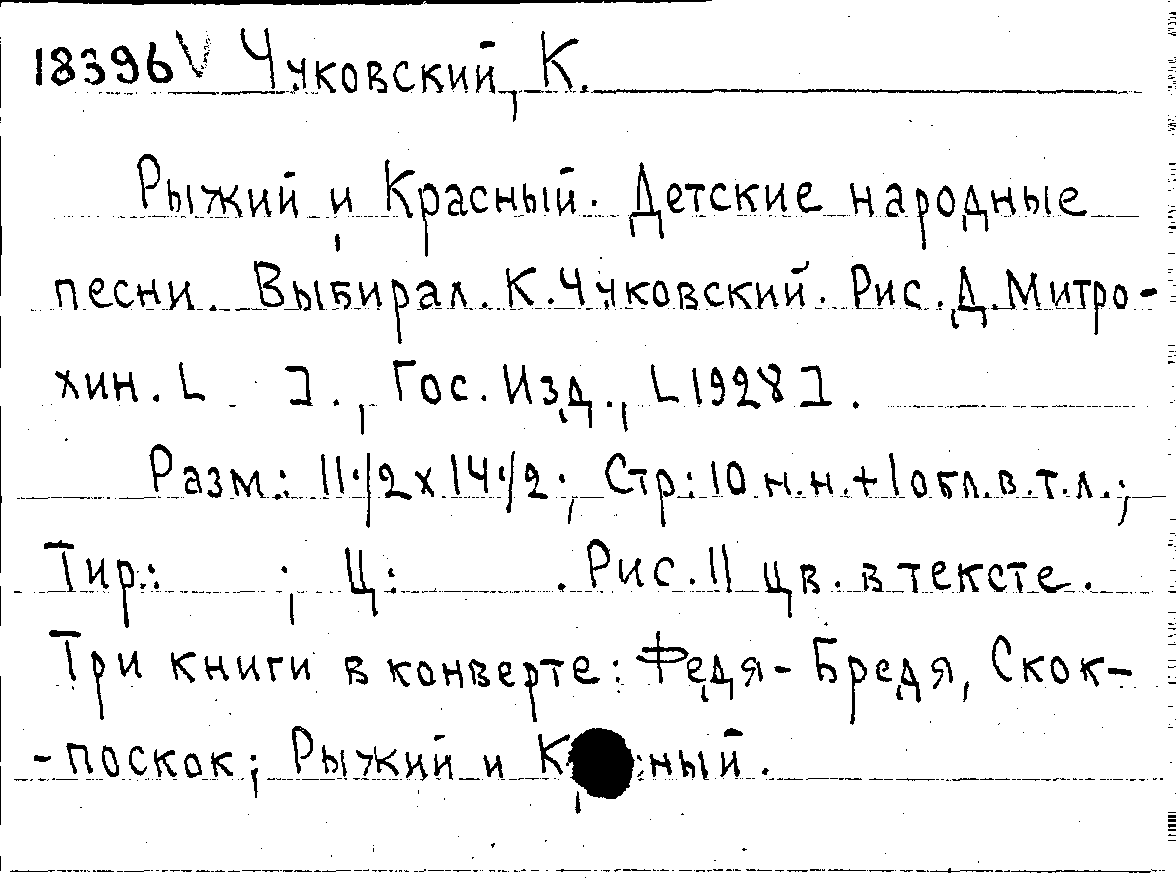 18396 V Чуковский, К.
Рыжий и Красный. Детские народные
песни. Выбирал. К. Чуковский. Рис. Д. Митро-
хин. [ ]., Гос. Изд., [1928].
Разм.: 11·/2 x 14·/2; Стр: 10 н.н. + 1 обл. в. т. л.;
Тир.: ; Ц: . Рис. 11 цв. в тексте.
Три книги в конверте: Федя-Бредя, Скок-
-поскок; Рыжий и К ный.